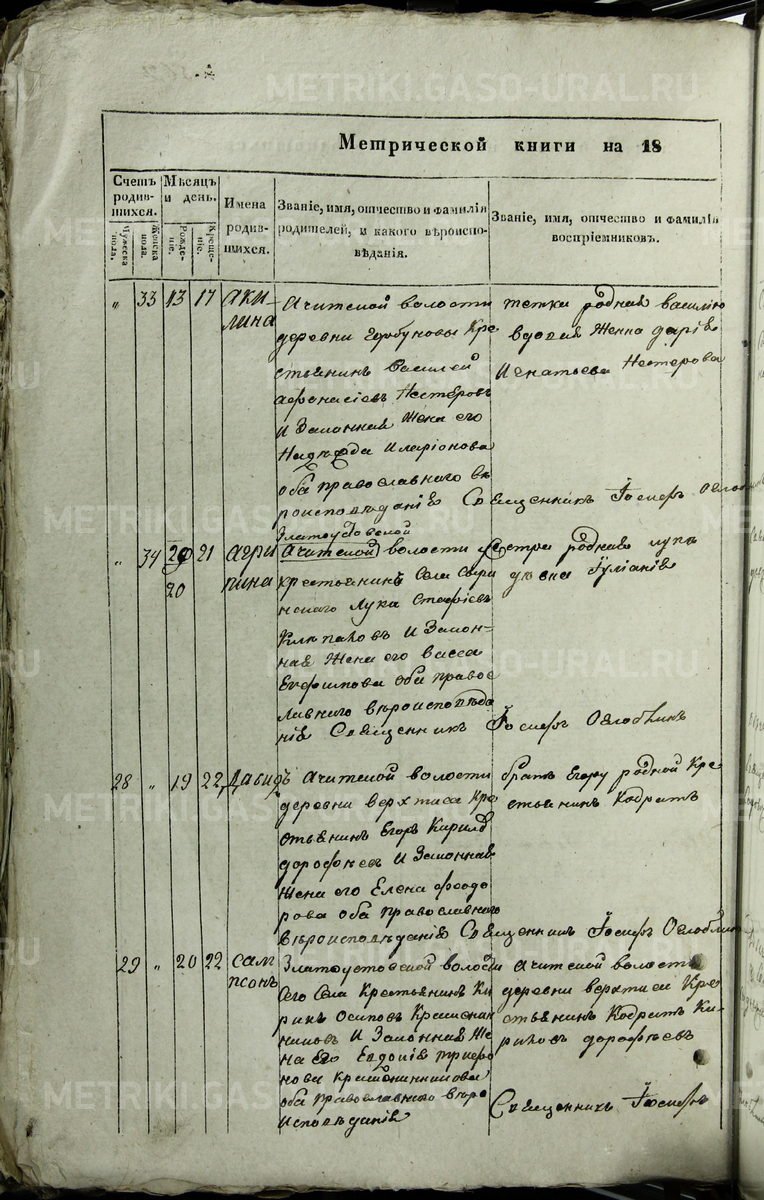 METRIKI.GASO-URAL.RU
Метрической книги на 18
Счетъ родив-шихся.
Мужеска пола.
Женска пола.
Мѣсяцъ и день.
Рожде-ніе.
Креще-ніе.
Имена родив-шихся.
Званіе, имя, отчество и фамилія родителей, и какого вѣроиспо-вѣданія.
Званіе, имя, отчество и фамилія воспріемниковъ.
„ 33 13 17 Аки-
лина
Ачитской волости
деревни Кре
стьянинъ Василей
Афонасіевъ Нестеровъ
И Законная Жена его
Надѣжда Иларіонова
оба православнаго вѣ
роисповѣданія Священникъ Іосифъ
тетка родная василію
вдовая Женка дарія
Игнатьева Нестерова
„ 34 20 21 Агри
пина
Златоустовской
Ачитской волости
крестьянинъ Села
Лука
И Закон-
ная Жена его васса
Евфимова оба правос
лавнаго вѣроисповѣда
нія Священникъ Іосифъ Оглоблинъ
Сестра родная лукѣ
дѣвка Іуліанія
28 „ 19 22 Давидъ
Ачитской волости
деревни верхтиса Кре
стьянинъ Егоръ Кирилъ
дорофѣевъ И Законная
Жена его Елена феодо
рова оба православнаго
вѣроисповѣданія Священникъ Іосифъ Оглоблинъ
братъ Егору родной Кре
стьянинъ Кодратъ
29 „ 20 22 Сам
псонъ
Златоустовской волости
Сего Села Крестьянинъ Ки
рикъ Осиповъ
И Законная Же
на Его Евдокія трифо
нова
оба православнаго вѣро
исповѣданія
Ачитской волости
деревни верхтиси Кре
стьянинъ Кодратъ Ки-
риловъ дорофѣевъ
Священникъ Іосифъ